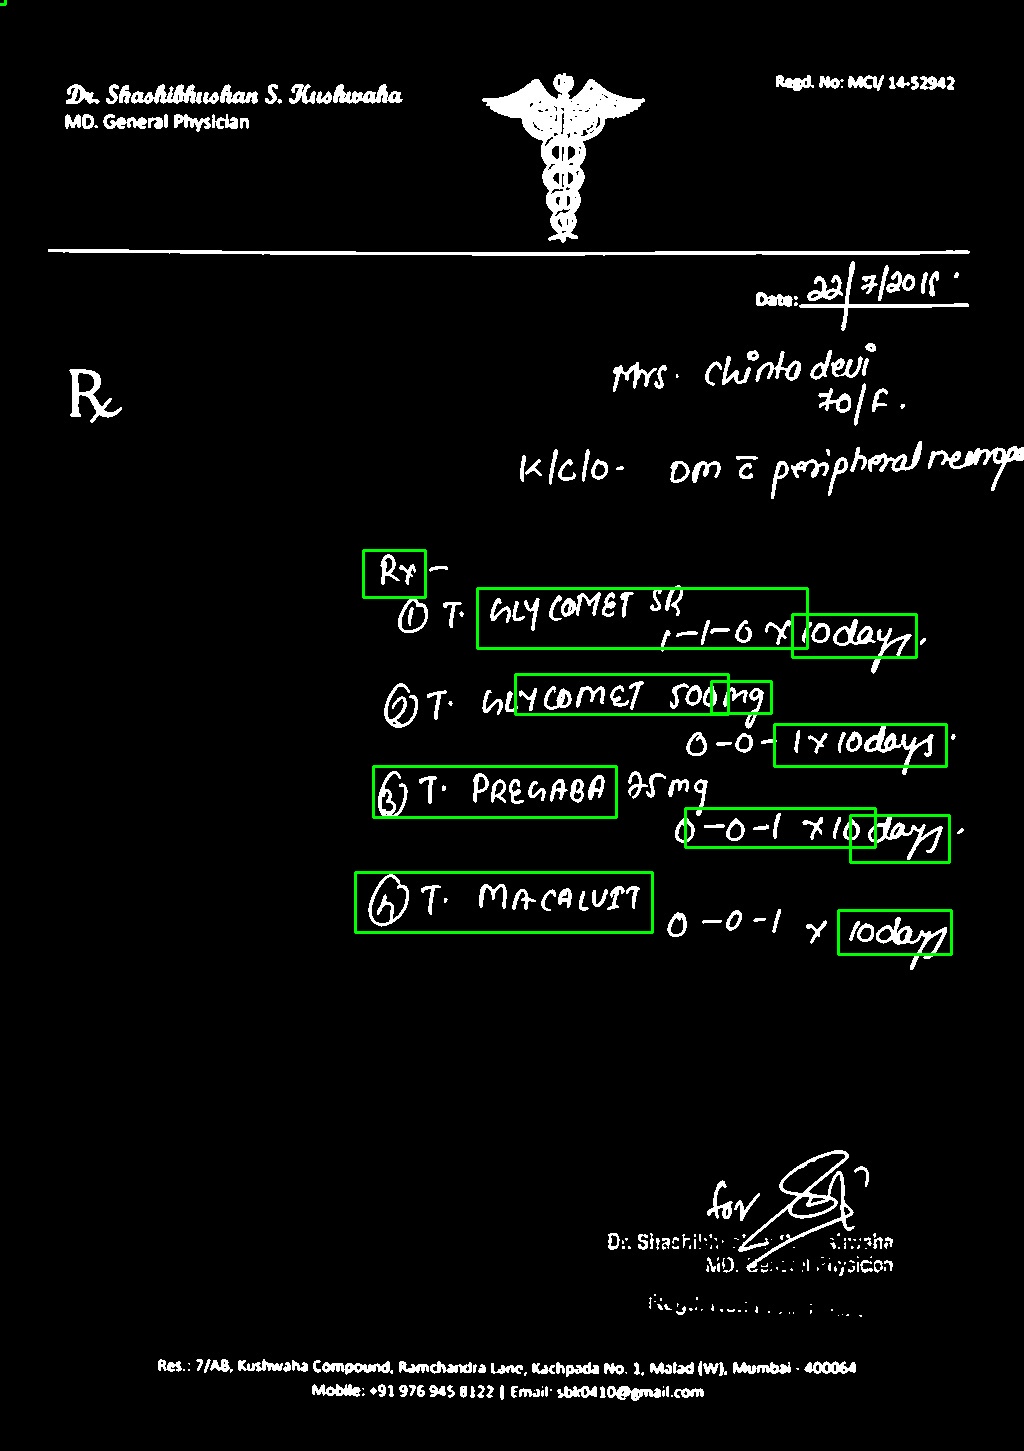 Dr. Shashibhushan S. Kushwaha
MD. General Physician
Regd. No: MCI/ 14-52942
Date: 22/7/2018.
Rx
Mrs. Chinta devi
70/F.
K/C/O- DM c̄ peripheral neurop
Rx -
① T. GLYCOMET SR
1-1-0 x 10 days.
② T. GLYCOMET 500 mg
0-0-1 x 10 days.
③ T. PREGABA 75 mg
0-0-1 x 10 days.
④ T. MACALVIT
0-0-1 x 10 days
for
Dr. Shashibhushan S. Kushwaha
MD. General Physician
Res.: 7/AB, Kushwaha Compound, Ramchandra Lane, Kachpada No. 1, Malad (W), Mumbai - 400064
Mobile: +91 976 945 8122 | Email: sbk0410@gmail.com